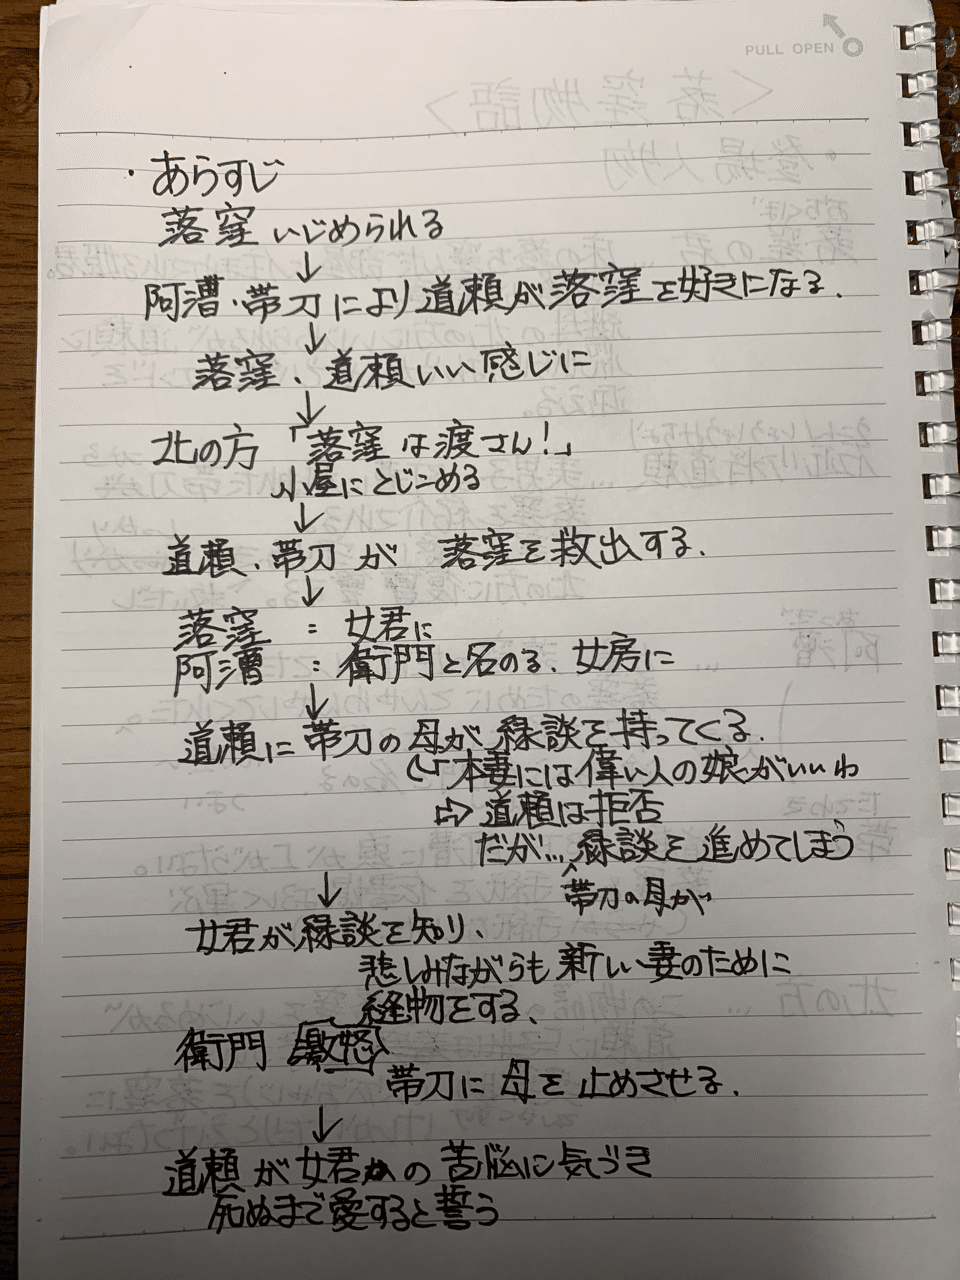 PULL OPEN
・あらすじ
落窪いじめられる
↓
阿漕・帯刀により道頼が落窪を好きになる.
↓
落窪、道頼いい感じに
↓
北の方「落窪は渡さん!」
小屋にとじこめる
↓
道頼、帯刀が 落窪を救出する.
↓
落窪 : 女君に
阿漕 : 衛門と名のる、女房に
↓
道頼に帯刀の母が縁談を持ってくる.
本妻には偉い人の娘がいいわ
⇨道頼は拒否
だが…縁談を進めてしまう
帯刀の母が
↓
女君が縁談を知り、
悲しみながらも新しい妻のために
縫物をする、
衛門 激怒
帯刀に母を止めさせる.
↓
道頼が女君の苦悩に気づき
死ぬまで愛すると誓う